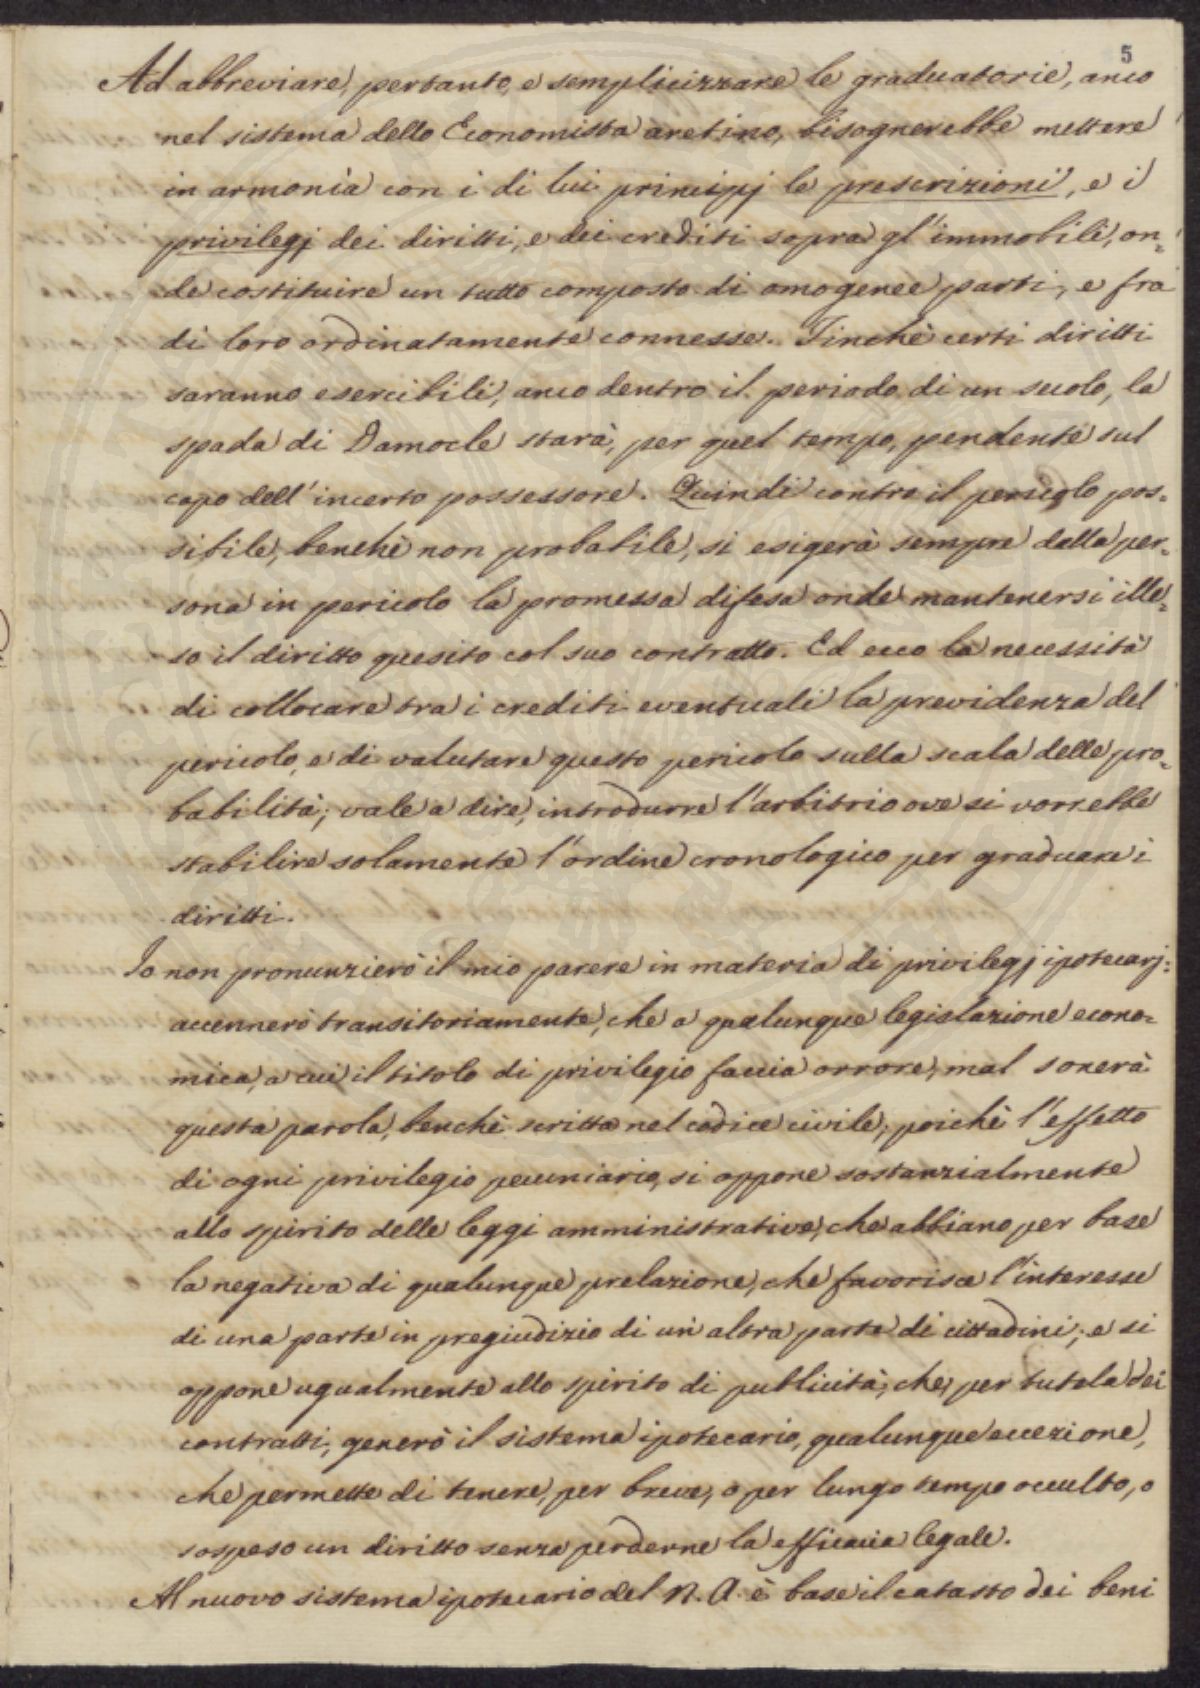 5
Ad abbreviare, pertanto, e semplicizzare le graduatorie, anco
nel sistema dello Economista aretino, bisognerebbe mettere
in armonìa con i di lui principj le prescrizioni, e i
privilegj dei diritti, e dei crediti sopra gl'immobili, on=
de costituire un tutto composto di omogenee parti, e fra
di loro ordinatamente connesse. Finchè certi diritti
saranno esercibili, anco dentro il periodo di un secolo, la
spada di Damocle starà, per quel tempo, pendente sul
capo dell'incerto possessore. Quindi contro il pericolo pos=
sibile, benchè non probabile, si esigerà sempre dalla per=
sona in pericolo la promessa difesa onde mantenersi ille=
so il diritto quesito col suo contratto. Ed ecco la necessità
di collocare tra i crediti eventuali la previdenza del
pericolo, e di valutare questo pericolo sulla scala delle pro=
babilità; vale a dire, introdurre l'arbitrio ove si vorrebbe
stabilire solamente l'ordine cronologico per graduare i
diritti.
Io non pronunzierò il mio parere in materia di privilegj ipotecarj:
accennerò transitoriamente, che a qualunque legislazione econo=
mica, a cui il titolo di privilegio faccia orrore, mal sonerà
questa parola, benchè scritta nel codice civile; poichè l'effetto
di ogni privilegio pecuniario, si oppone sostanzialmente
allo spirito delle leggi amministrative, che abbiano per base
la negativa di qualunque prelazione, che favorisce l'interesse
di una parte in pregiudizio di un altra parte di cittadini; e si
oppone ugualmente allo spirito di publicità, che, per tutela dei
contratti, generò il sistema ipotecario, qualunque eccezione,
che permette di tenere, per breve, o per lungo tempo occulto, o
sospeso un diritto senza perderne la efficacia legale.
Al nuovo sistema ipotecario del N. A. è base il catasto dei beni